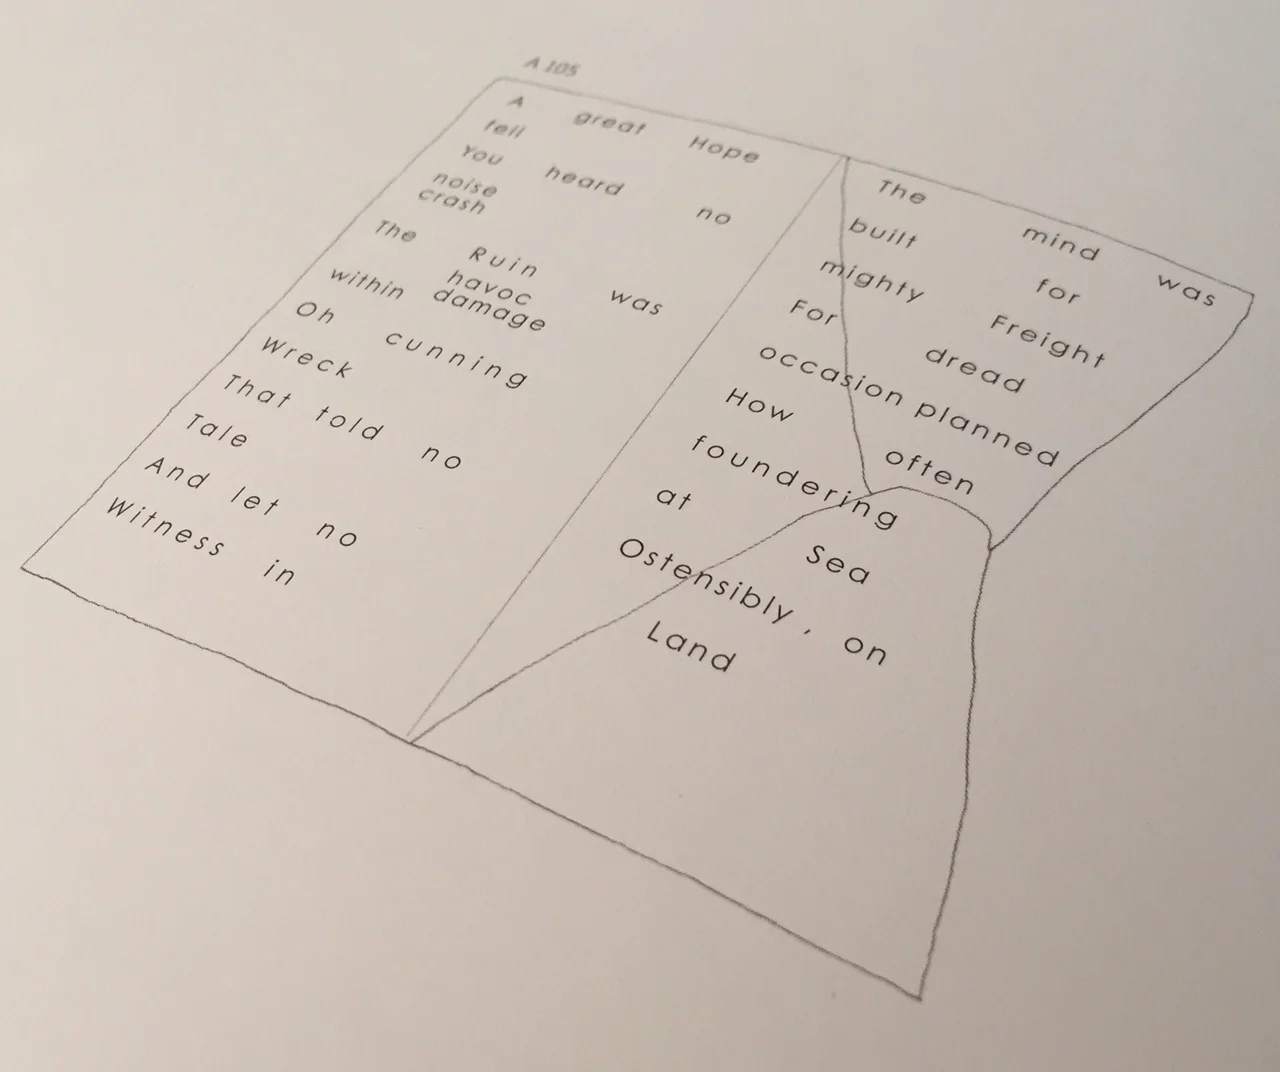 A 105
A great Hope
fell
You heard no
noise
crash
The Ruin was
havoc
within damage
Oh cunning
Wreck
That told no
Tale
And let no
Witness in
The mind was
built for
mighty Freight
For dread
occasion planned
How often
foundering
at Sea
Ostensibly, on
Land